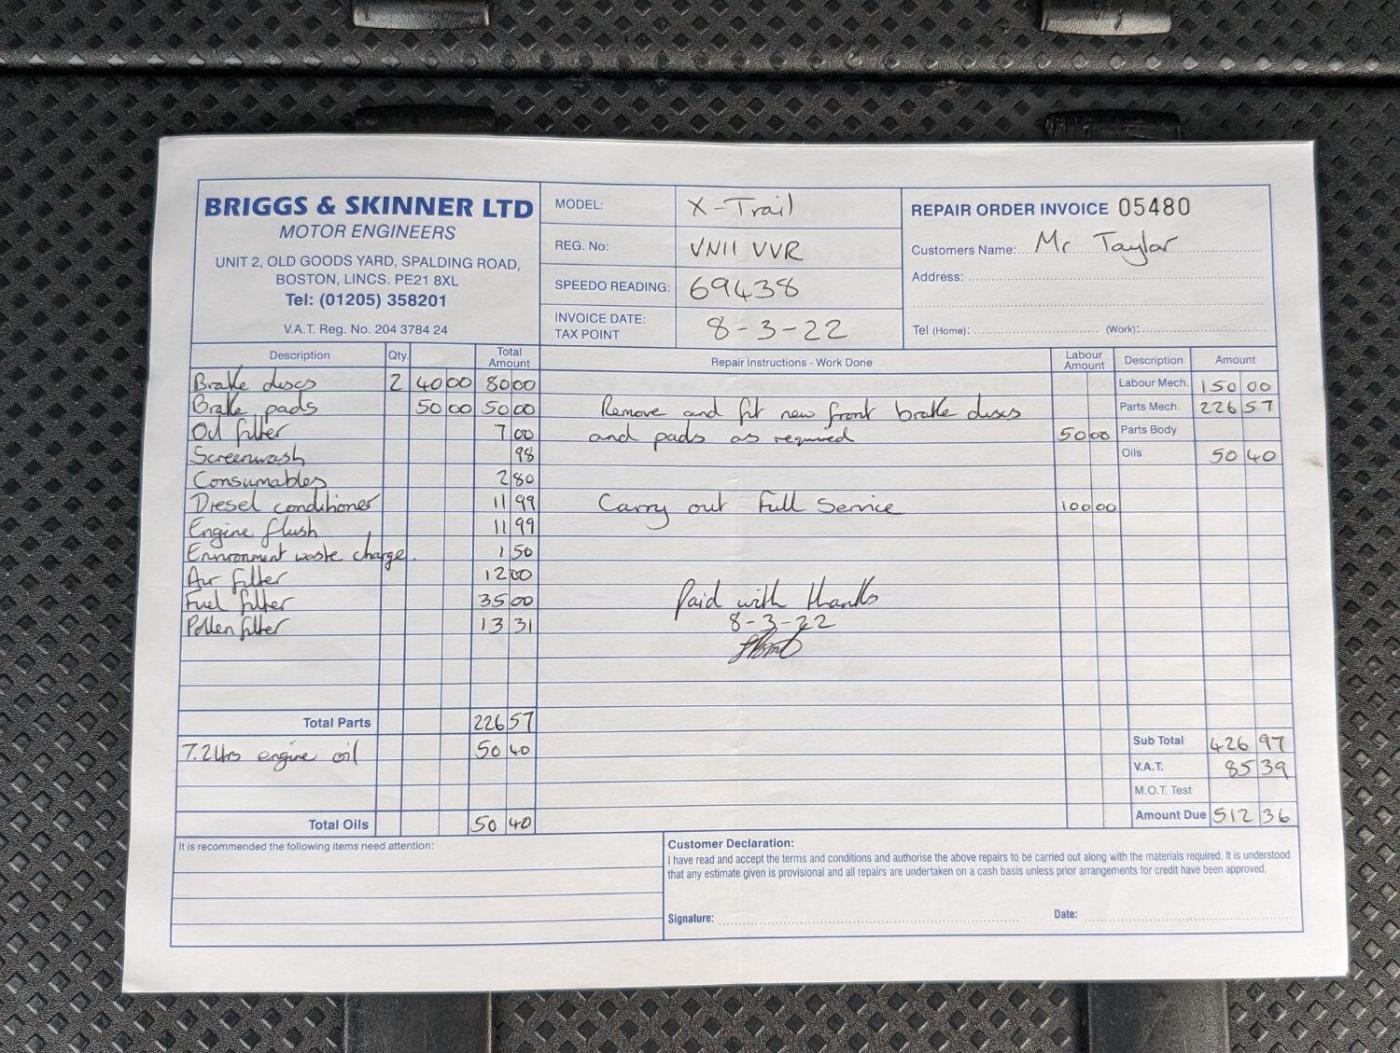 BRIGGS & SKINNER LTD
MOTOR ENGINEERS
UNIT 2, OLD GOODS YARD, SPALDING ROAD,
BOSTON, LINCS. PE21 8XL
Tel: (01205) 358201
V.A.T. Reg. No. 204 3784 24
MODEL: X-Trail
REG. No: VN11 VVR
SPEEDO READING: 69438
INVOICE DATE: TAX POINT 8-3-22
REPAIR ORDER INVOICE 05480
Customers Name: Mr Taylor
Address:
Tel (Home): (Work):
Description Qty. Total Amount
Brake discs 2 40 00 80 00
Brake pads 50 00 50 00
Oil filter 7 00
Screenwash 98
Consumables 2 80
Diesel conditioner 11 99
Engine flush 11 99
Environment waste charge. 1 50
Air filter 12 00
Fuel filter 35 00
Pollen filter 13 31
Total Parts 226 57
7.2ltrs engine oil 50 40
Total Oils 50 40
Repair Instructions - Work Done Labour Amount
Remove and fit new front brake discs
and pads as required 50 00
Carry out Full Service 100 00
Paid with thanks
8-3-22
Description Amount
Labour Mech. 150 00
Parts Mech. 226 57
Parts Body
Oils 50 40
Sub Total 426 97
V.A.T. 85 39
M.O.T. Test
Amount Due 512 36
It is recommended the following items need attention:
Customer Declaration:
I have read and accept the terms and conditions and authorise the above repairs to be carried out along with the materials required. It is understood
that any estimate given is provisional and all repairs are undertaken on a cash basis unless prior arrangements for credit have been approved.
Signature: Date: